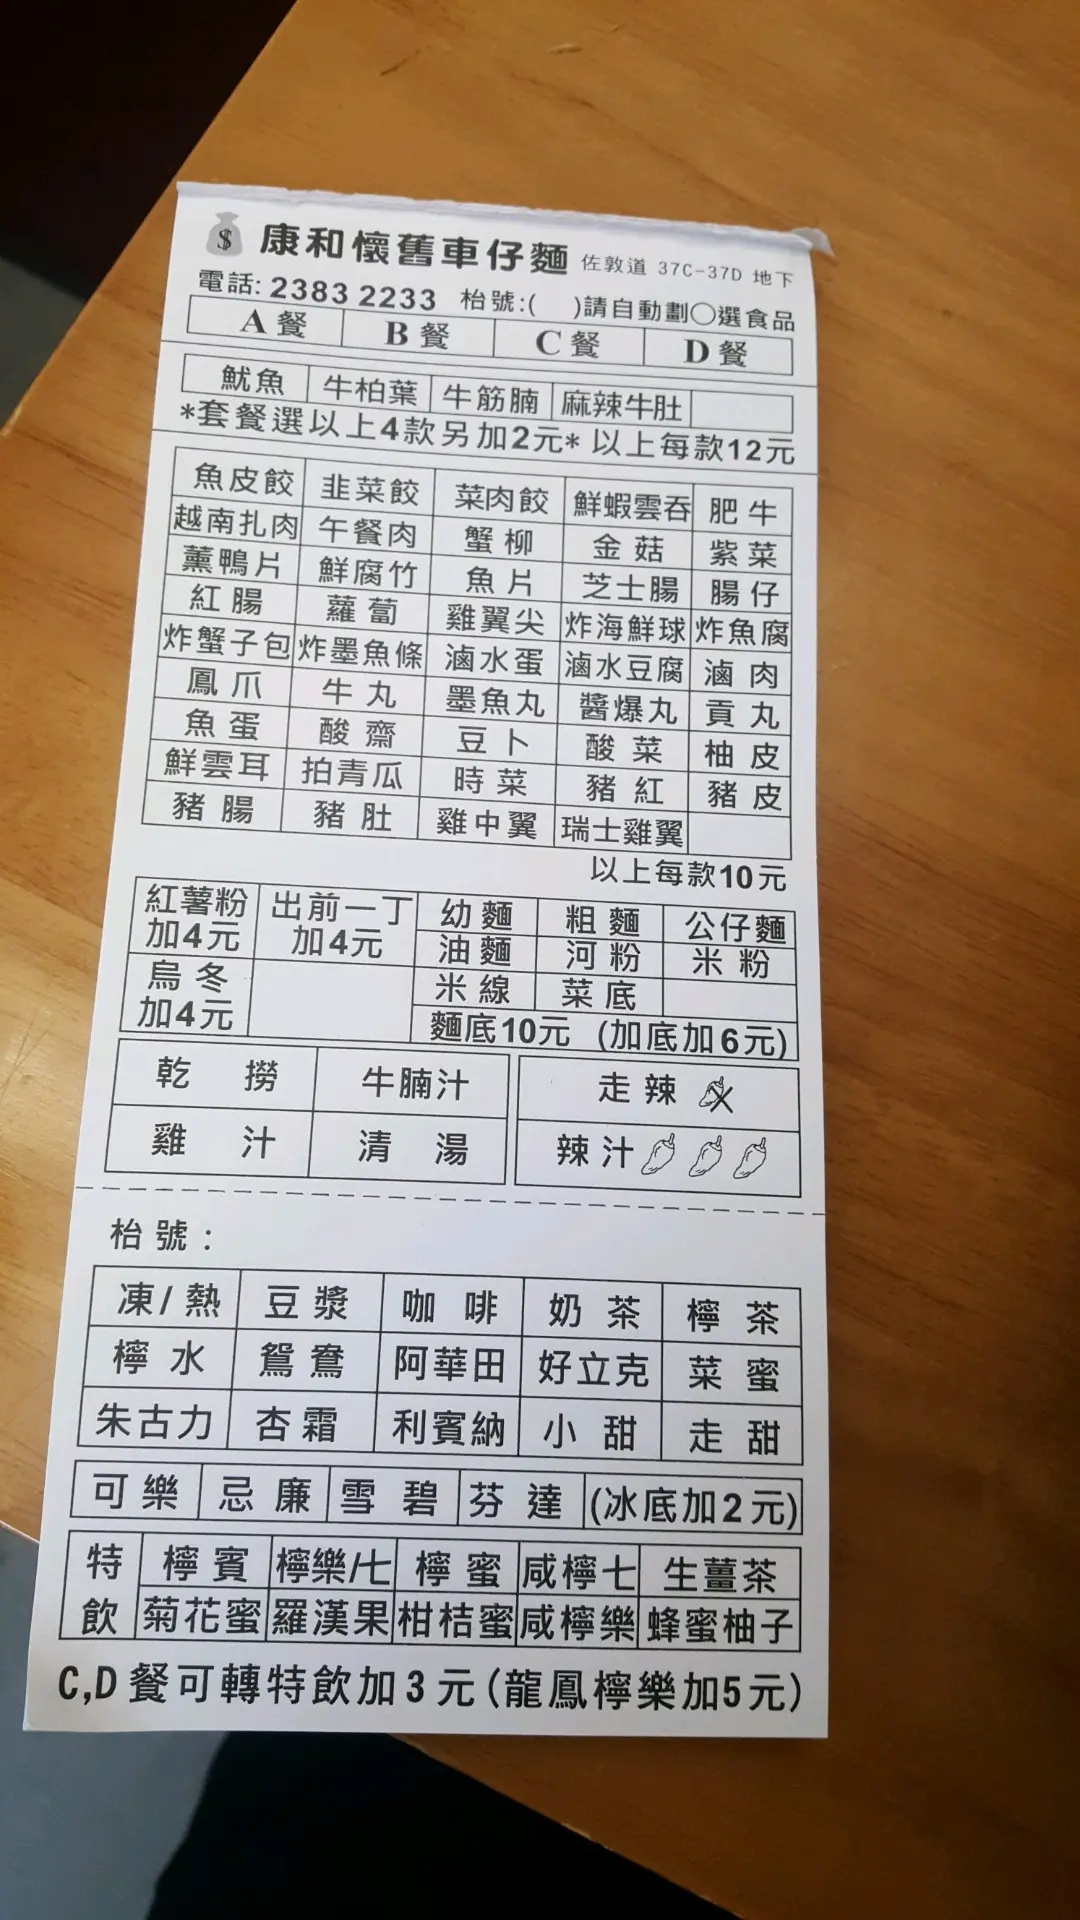 $ 康和懷舊車仔麵 佐敦道 37C-37D 地下
電話: 2383 2233 枱號:( )請自動劃○選食品
A 餐 B 餐 C 餐 D 餐
魷魚 牛柏葉 牛筋腩 麻辣牛肚
*套餐選以上4款另加2元* 以上每款12元
魚皮餃 韭菜餃 菜肉餃 鮮蝦雲吞 肥牛
越南扎肉 午餐肉 蟹柳 金菇 紫菜
薰鴨片 鮮腐竹 魚片 芝士腸 腸仔
紅腸 蘿蔔 雞翼尖 炸海鮮球 炸魚腐
炸蟹子包 炸墨魚條 滷水蛋 滷水豆腐 滷肉
鳳爪 牛丸 墨魚丸 醬爆丸 貢丸
魚蛋 酸齋 豆卜 酸菜 柚皮
鮮雲耳 拍青瓜 時菜 豬紅 豬皮
豬腸 豬肚 雞中翼 瑞士雞翼
以上每款10元
紅薯粉 出前一丁 幼麵 粗麵 公仔麵
加4元 加4元 油麵 河粉 米粉
烏冬 米線 菜底
加4元 麵底10元 (加底加6元)
乾撈 牛腩汁 走辣
雞汁 清湯 辣汁
枱號:
凍/熱 豆漿 咖啡 奶茶 檸茶
檸水 鴛鴦 阿華田 好立克 菜蜜
朱古力 杏霜 利賓納 小甜 走甜
可樂 忌廉 雪碧 芬達 (冰底加2元)
特 檸賓 檸樂/七 檸蜜 咸檸七 生薑茶
飲 菊花蜜 羅漢果 柑桔蜜 咸檸樂 蜂蜜柚子
C,D 餐可轉特飲加3元(龍鳳檸樂加5元)